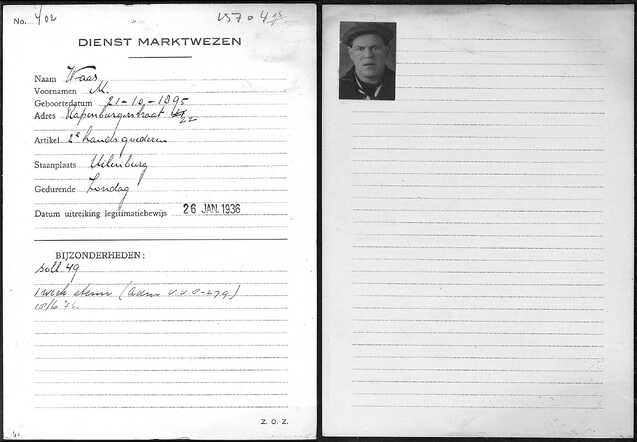 No. 402
DIENST MARKTWEZEN
Naam Waas
Voornamen M.
Geboortedatum 21-10-1895
Adres Rapenburgerstraat 22
Artikel 2e handsgoederen
Staanplaats Uilenburg
Gedurende Zondag
Datum uitreiking legitimatiebewijs 26 JAN. 1936
BIJZONDERHEDEN:
soll. 49
1 week
Z. O. Z.